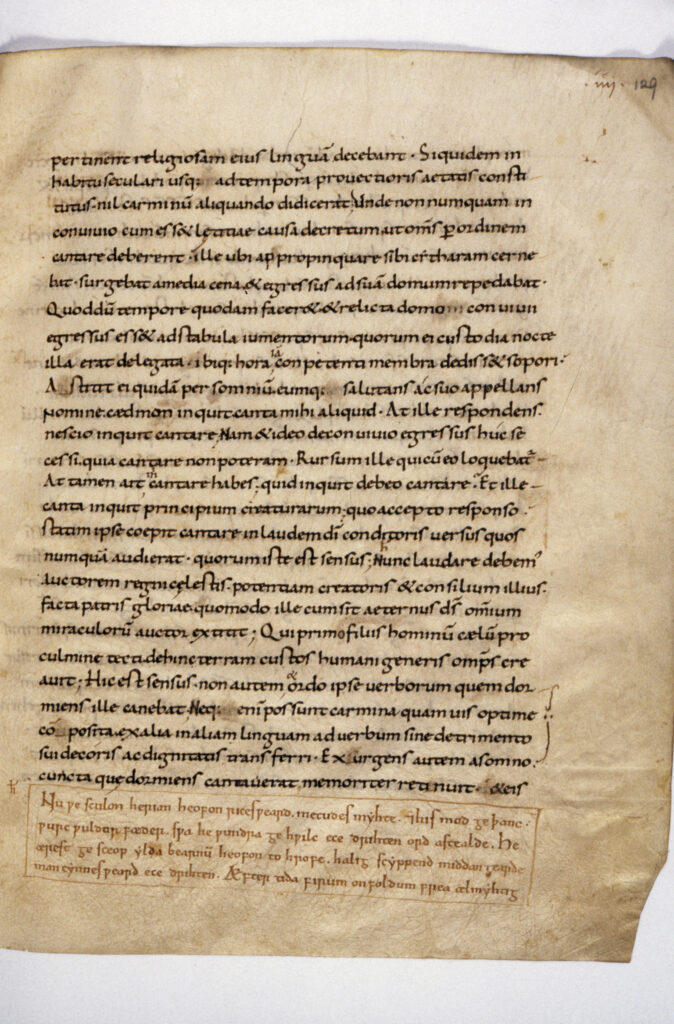 ·iiij· 129
pertinent religiosam eius linguā decebant · Siquidem in
habitu seculari usq; ad tempora prouectioris aetatis consti
tutus · nil carminū aliquando didicerat · Unde non numquam in
conuiuio cum ess& letitiae causa decretum ut om̄s ꝑ ordinem
cantare deberent · ille ubi appropinquare sibi citharam cerne
bat · surgebat a media cena · & egressus ad suā domum repedabat ·
Quod dū tempore quodam facer& · & relicta domo conuiuii
egressus ess& ad stabula iumentorum · quorum ei custodia nocte
illa erat delegata · ibiq; hora conpetenti membra dediss& sopori ·
Astitit ei quidā per somniū · eumq; salutans ac suo appellans
nomine · cædmon inquit canta mihi aliquid · At ille respondens ·
nescio inquit cantare · Nam & ideo de conuiuio egressus huc se
cessi · quia cantare non poteram · Rursum ille qui cū eo loquebat̄
At tamen ait cantare habes · quid inquit debeo cantare · Et ille
canta inquit principium creaturarum · quo accepto responso ·
statim ipse coepit cantare in laudem dī conditoris uersus quos
numquā audierat · quorum iste est sensus · Nunc laudare debem'
auctorem regni celestis · potentiam creatoris & consilium illius ·
facta patris gloriae · quomodo ille cum sit aeternus dꝭ omīum
miraculorū auctor extitit ; Qui primo filiis hominū cælū pro
culmine tecti · dehinc terram custos humani generis omp̄s cre
auit ; Hic est sensus · non autem ordo ipse uerborum quem dor
miens ille canebat · Neq; enī possunt carmina quamuis optime
cōposita · ex alia in aliam linguam ad uerbum sine detrimento
sui decoris ac dignitatis transferri · Exurgens autem a somno ·
cuncta que dormiens cantauerat memoriter retinuit · & eis
Nu ƿe sculon herian heofon ricesƿeard · metudes myhte · ⁊ his mod geþanc ·
ƿurc ƿuldor fæder · sƿa he ƿundra gehƿilc ece drihten ord astealde · He
ærest gesceop ylda bearnū heofon to hrofe · halig scyppend middangearde
mancynnes ƿeard ece drihten · Æfter tida firum on foldum frea ælmyhtig